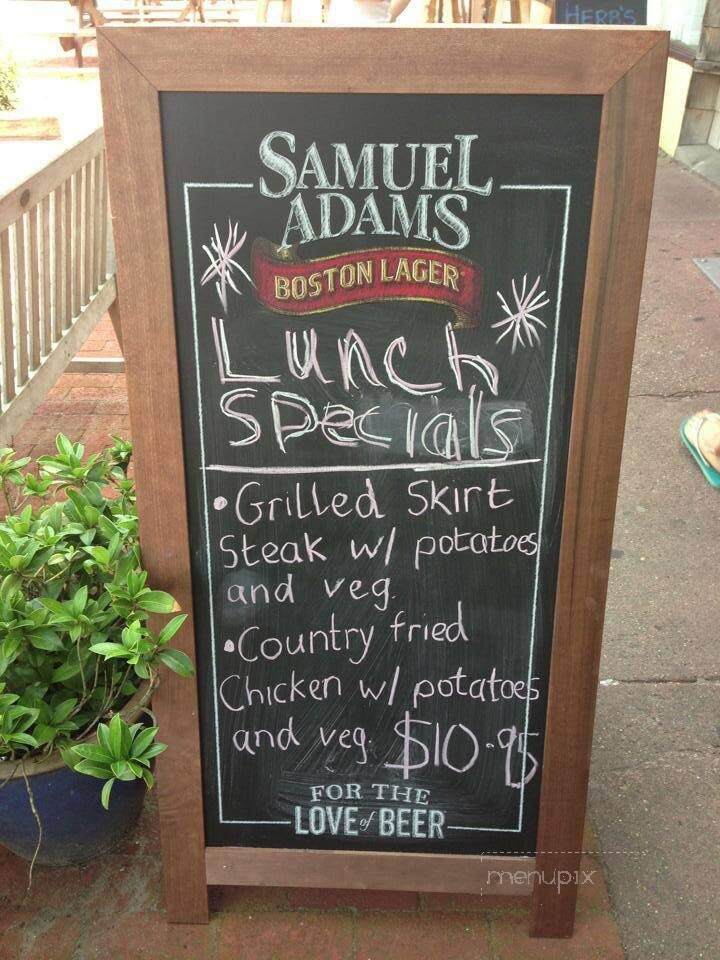 HERB'S
SAMUEL
ADAMS
BOSTON LAGER
Lunch
Specials
• Grilled Skirt
Steak w/ potatoes
and veg.
• Country fried
Chicken w/ potatoes
and veg. $10.95
FOR THE
LOVE of BEER
menupix